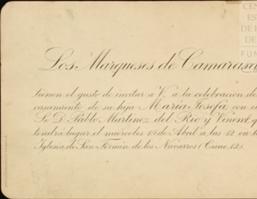 Los Marqueses de Camarasa
tienen el gusto de invitar a V. a la celebración de
casamiento de su hija María Josefa con el
Sr. D. Pablo Martínez del Río y Vinent, que
tendrá lugar el miércoles 10 de Abril a las 12 en la
Iglesia de San Fermín de los Navarros (Cisne, 12).